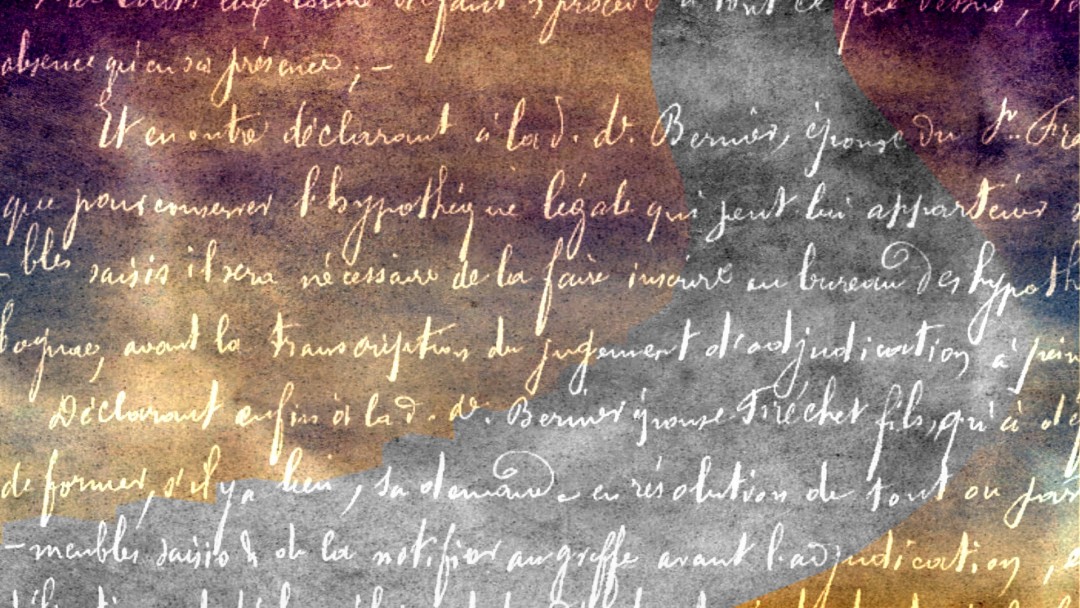 défaut s procédé à tout ce que dessus,
absence qu'en sa présence ; —
Et en outre déclarant à la d. de. Bernier, épouse du Sr. Fré
que pour conserver l'hypothèque légale qui peut lui appartenir s
bles saisis il sera nécessaire de la faire inscrire au bureau des hypoth
Cognac, avant la transcription du jugement d'adjudication, à pein
Déclarant enfin à la d. de. Bernier épouse Fréchet fils, qu'à dé
de former, s'il y a lieu, sa demande en résolution de tout ou par
— meubles saisis & de la notifier au greffe avant l'adjudication,